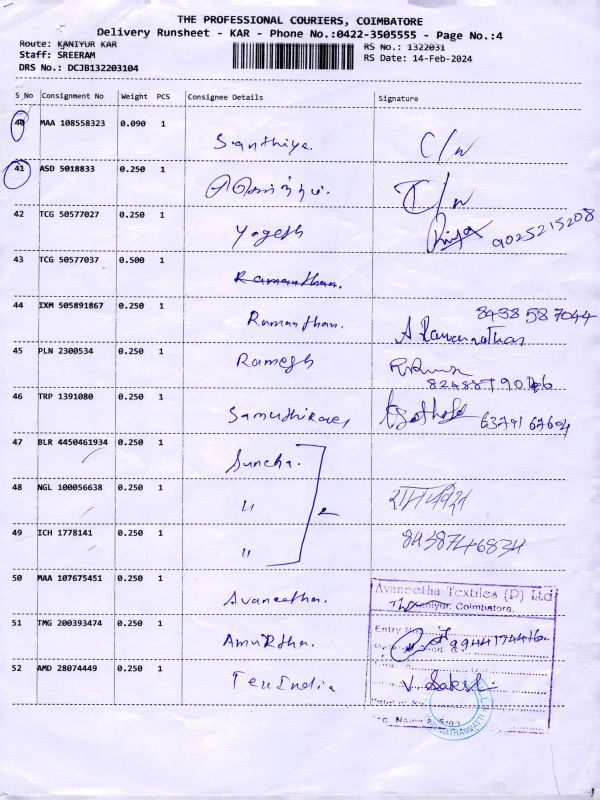 THE PROFESSIONAL COURIERS, COIMBATORE
Delivery Runsheet - KAR - Phone No.:0422-3505555 - Page No.:4
Route: KANIYUR KAR
RS No.: 1322031
Staff: SREERAM
RS Date: 14-Feb-2024
DRS No.: DCJB132203104
S No Consignment No Weight PCS Consignee Details Signature
40 MAA 108558323 0.090 1 Santhiya. C/w
41 ASD 5018833 0.250 1 C/w
42 TCG 50577027 0.250 1 Yogesh Priya 9025215208
43 TCG 50577037 0.500 1 Ramanthan.
44 IXM 505891867 0.250 1 Ramanthan. 8438587044
45 PLN 2300534 0.250 1 Ramesh
46 TRP 1391080 0.250 1
47 BLR 4450461934 0.250 1
48 NGL 100056638 0.250 1 "
49 ICH 1778141 0.250 1 " 8438746834
50 MAA 107675451 0.250 1 Avaneetha.
Avaneetha Textiles (P) Ltd
Kaniyur, Coimbatore.
51 TMG 200393474 0.250 1 Amurtha.
Entry No
9944174416
52 AMD 28074449 0.250 1 Tex India